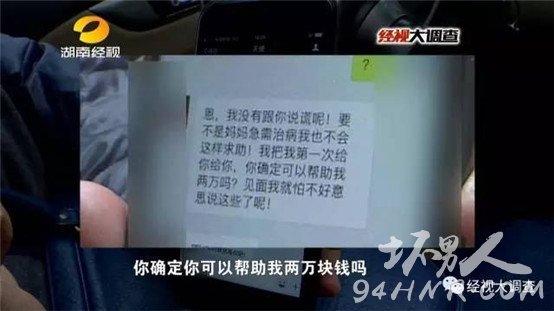 湖南经视
经视大调查
天使
?
恩，我没有跟你说谎呢！要
不是妈妈急需治病我也不会
这样求助！我把我第一次给
你给你，你确定可以帮助我
两万吗？见面我就怕不好意
思说这些了呢！
你确定你可以帮助我两万块钱吗
坏男人
94HNR.COM
经视大调查